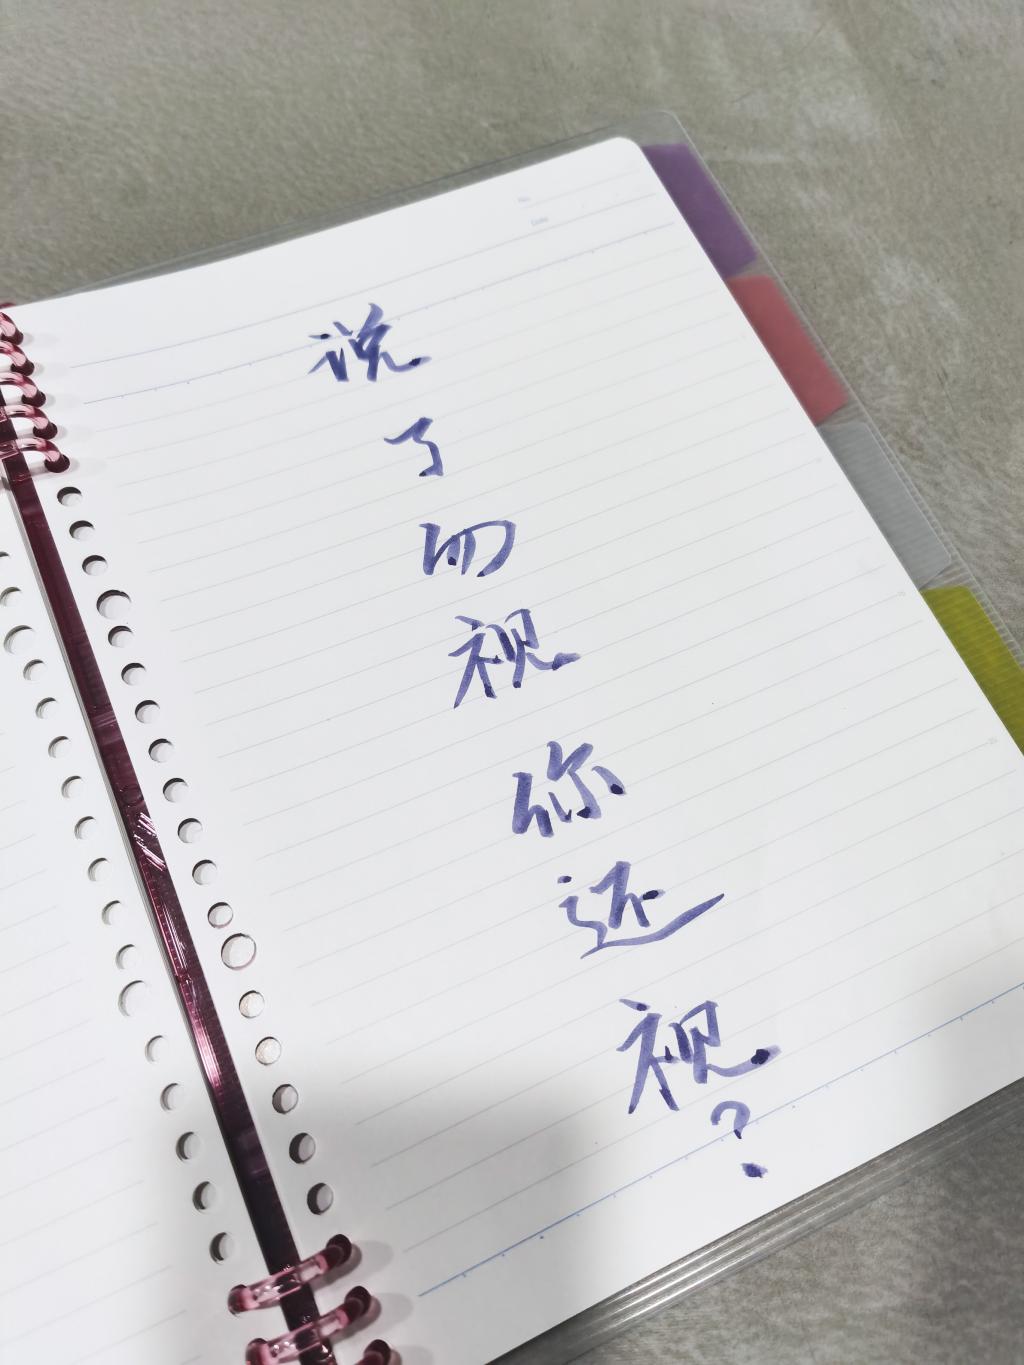 No.
Date
说
了
勿
视
你
还
视
?